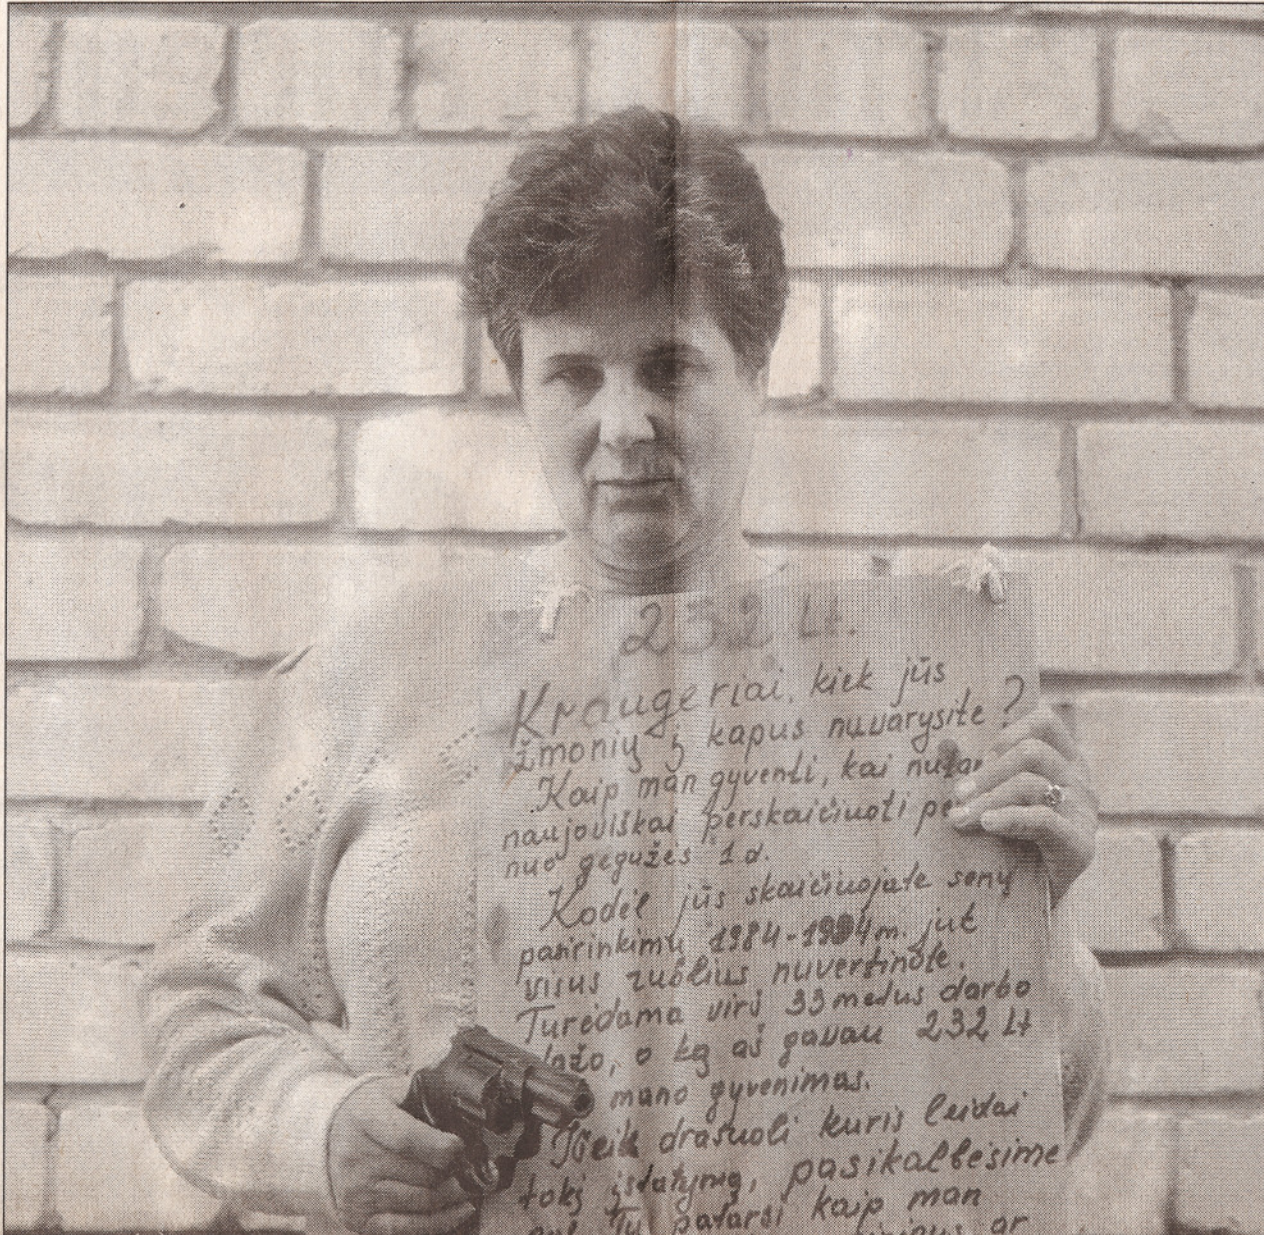 232 Lt.
Kraugeriai, kiek jūs
žmonių į kapus nuvarysite?
Kaip man gyventi, kai nutar
naujoviškai perskaičiuoti pe
nuo gegužės 1 d.
Kodėl jūs skaičiuojate senų
pasirinkimų 1984-1994 m. juk
visus rublius nuvertinote.
Turėdama virš 33 metus darbo
stažo, o ką aš gavau 232 Lt
mano gyvenimas.
Išeik drąsuoli kuris leidai
tokį įstatymą, pasikalbėsime
Tu patarsi kaip man
ar